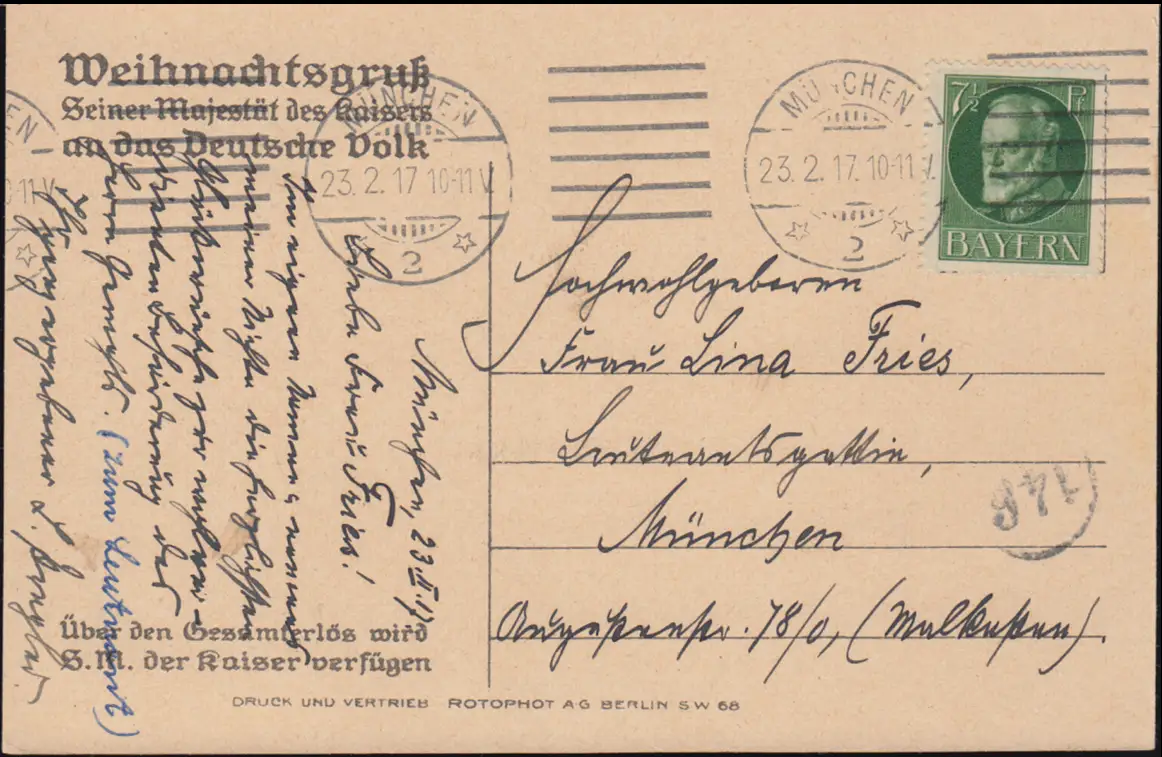 Weihnachtsgruß
Seiner Majestät des Kaisers
an das Deutsche Volk
MÜNCHEN
23. 2. 17 10-11 V.
2
MÜNCHEN
23. 2. 17. 10-11 V.
2
7½ Pf
BAYERN
München, 23. II. 17
Liebe Frau Fries!
Im eigenen Namen u. namens
meiner Nichte die herzlichsten
Glückwünsche zur
der
Herrn Gemahls. (zum Leutnant)
Ihr ergebener
Hochwohlgeboren
Frau Lina Fries,
Leutnantsgattin,
München
Augustenstr. 78/0, (Malkasten).
Über den Gesamterlös wird
S.M. der Kaiser verfügen
DRUCK UND VERTRIEB ROTOPHOT A·G BERLIN SW 68